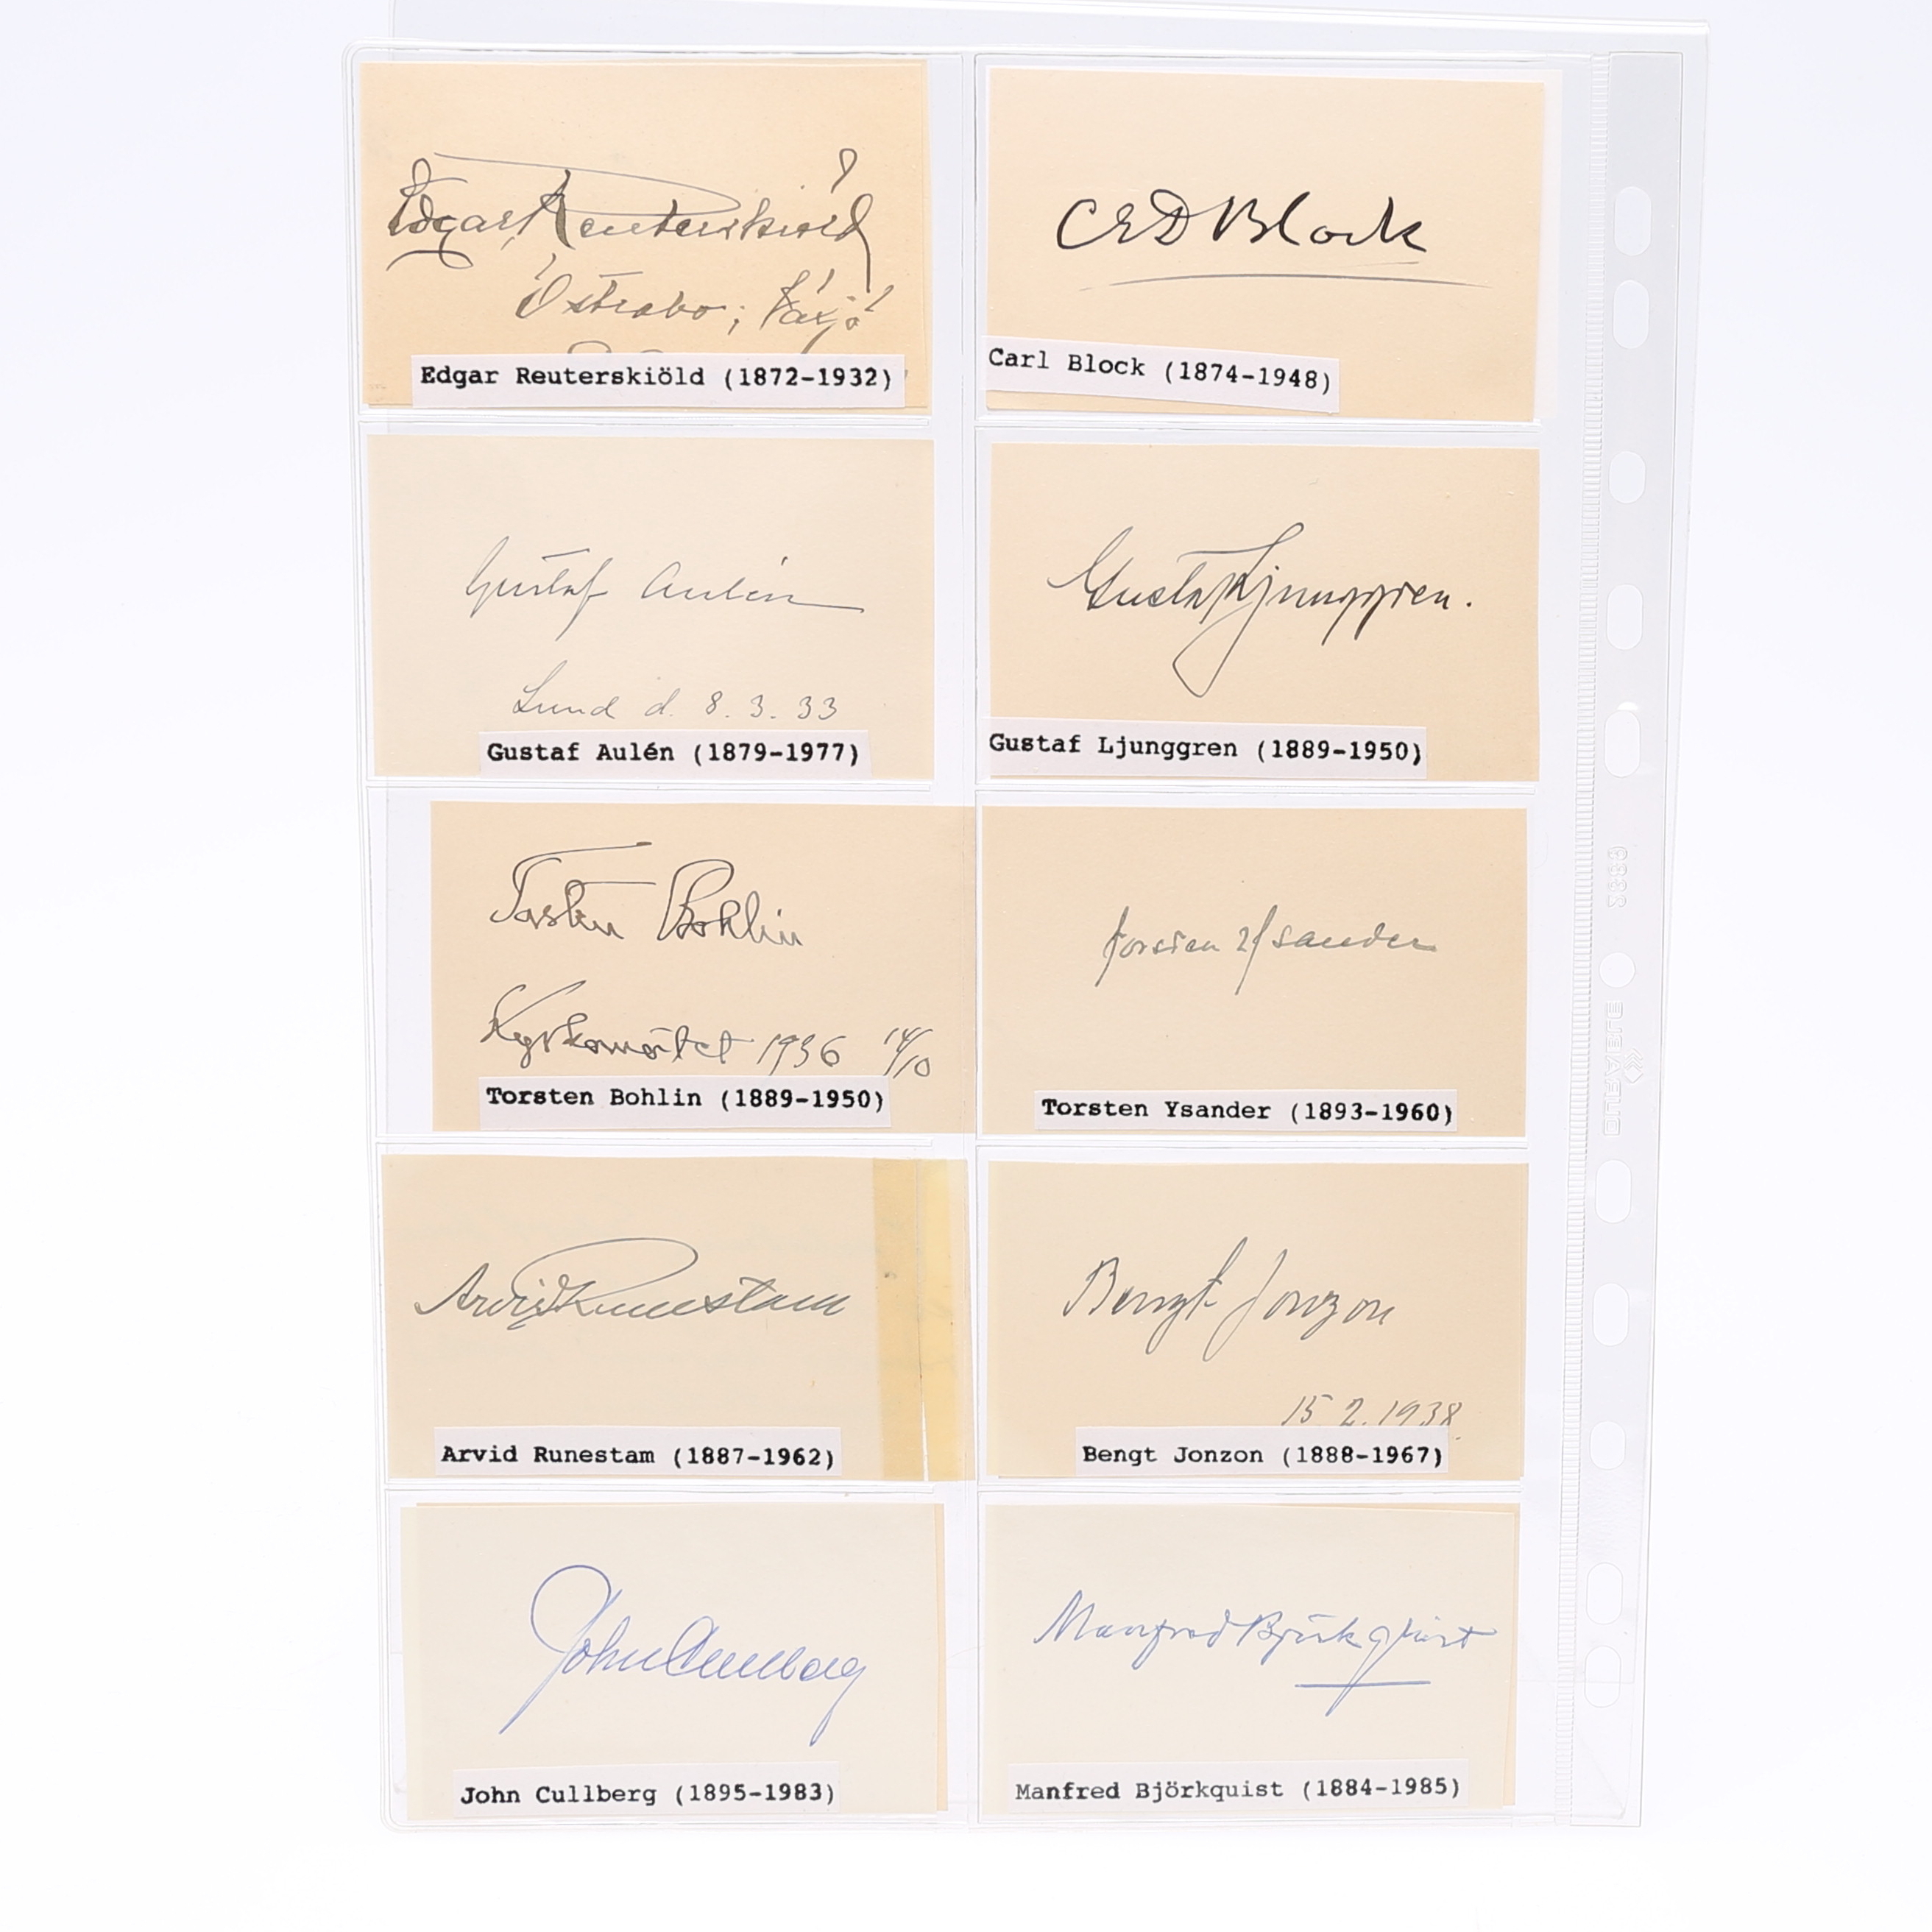 Edgar Reuterskiöld
Östrabo, Växjö
Edgar Reuterskiöld (1872-1932)
CED Block
Carl Block (1874-1948)
Gustaf Aulén
Lund d. 8.3.33
Gustaf Aulén (1879-1977)
Gustaf Ljunggren.
Gustaf Ljunggren (1889-1950)
Torsten Bohlin
Kyrkomötet 1936 14/10
Torsten Bohlin (1889-1950)
Torsten Ysander
Torsten Ysander (1893-1960)
Arvid Runestam
Arvid Runestam (1887-1962)
Bengt Jonzon
15 2.1938.
Bengt Jonzon (1888-1967)
John Cullberg
John Cullberg (1895-1983)
Manfred Björkquist
Manfred Björkquist (1884-1985)
DURABLE